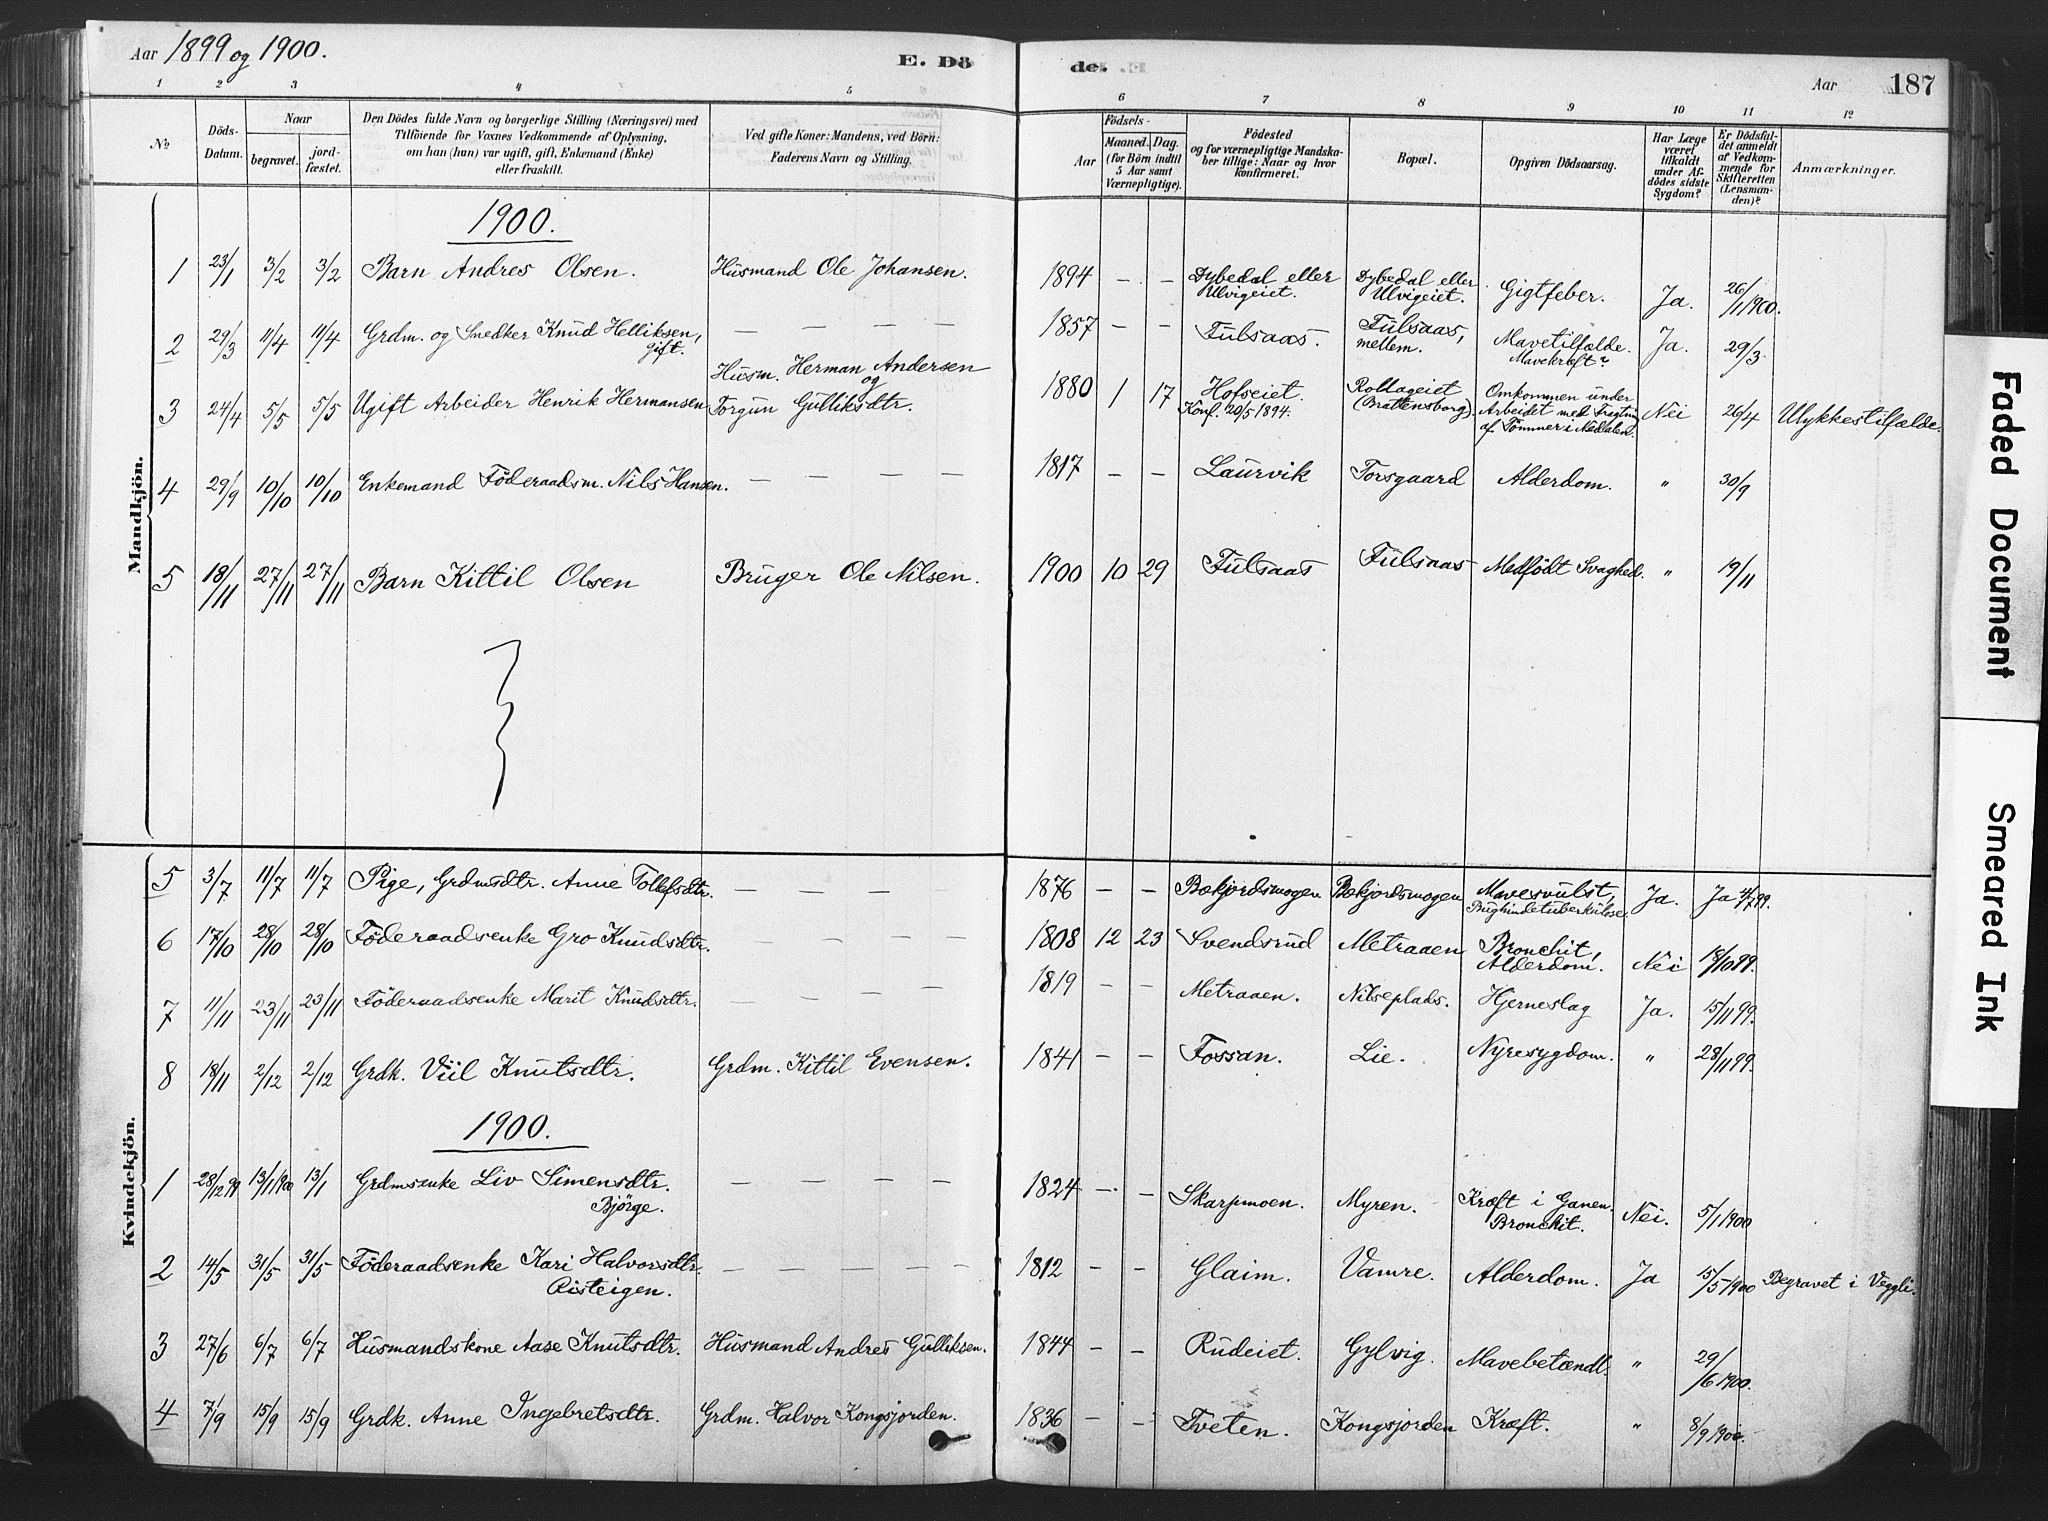 Aar 1899 og 1900. E. Dö de. Aar 187
1 2 3 4 5 6 7 8 9 10 11 12
No
Döds-Datum.
Naar
begravet.
jord-fæstet.
Den Dödes fulde Navn og borgerlige Stilling (Næringsvei) med
Tilföiende for Voxnes Vedkommende af Oplysning,
om han (hun) var ugift, gift, Enkemand (Enke)
eller fraskilt.
Ved gifte Koner: Mandens, ved Börn:
Faderens Navn og Stilling.
Födsels-
Aar
Maaned. Dag.
(for Börn indtil
5 Aar samt
Værnepligtige).
Födested
og for værnepligtige Mandska-
ber tillige: Naar og hvor
konfirmeret.
Bopæl.
Opgiven Dödsaarsag.
Har Læge
været
tilkaldt
under Af-
dödes sidste
Sygdom?
Er Dödsfal-
det anmeldt
af Vedkom-
mende for
Skifteretten
(Lensman-
den)?
Anmærkninger.
Mandkjön.
1900.
1 23/1 3/2 3/2 Barn Andres Olsen. Husmand Ole Johansen. 1894 — — Dybedal eller Ulvigeiet. Dybedal eller Ulvigeiet. Gigtfeber. Ja. 26/1 1900.
2 29/3 11/4 11/4 Grdm. og Snedker Knud Helliksen, gift. — — — — 1857 — — Fulsaas. Fulsaas, mellem. Mavetilfælde. Mavekræft? Ja. 29/3.
3 24/4 5/5 5/5 Ugift Arbeider Henrik Hermansen Husm. Herman Andersen og Torgun Gulliksdtr. 1880 1 17 Hofseiet. Konf. 20/5 1894. Rollageiet (Brattensborg). Omkommen under Arbeidet med af Tömmer i Nei 26/4 Ulykkestilfælde.
4 29/9 10/10 10/10 Enkemand Föderaadsm. Nils Hansen. — — — — 1817 — — Laurvik Torsgaard Alderdom. " 30/9
5 18/11 27/11 27/11 Barn Kittil Olsen Bruger Ole Nilsen. 1900 10 29 Fulsaas Fulsaas Medfödt Svaghed. " 19/11
Kvindekjön.
5 3/7 11/7 11/7 Pige, Grdmsdtr. Anne Tollefsdtr. — — — — 1876 — — Bækjordsmogen Bækjordsmogen Mavesvulst, Bughindetuberkulose. Ja. Ja 4/7 99.
6 17/10 28/10 28/10 Föderaadsenke Gro Knudsdtr. — — — — 1808 12 23 Svendsrud Metraaen Bronchit, Alderdom. Nei 18/10 99.
7 11/11 23/11 23/11 Föderaadsenke Marit Knudsdtr. — — — — 1819 — — Metraaen. Nilseplads. Hjerneslag Ja. 15/11 99.
8 18/11 2/12 2/12 Grdk. Viil Knutsdtr. Grdm. Kittil Evensen. 1841 — — Fossan. Lie. Nyresygdom. " 28/11 99.
1900.
1 28/12 99 13/1 1900 13/1 Grdmsenke Liv Simensdtr. Bjørge. — — — — 1824 — — Skarpmoen. Myren. Kræft i Ganen. Bronchit. Nei. 5/1 1900
2 14/5 31/5 31/5 Föderaadsenke Kari Halvorsdtr. Risteigen. — — — — 1812 — — Glaim. Vamre. Alderdom. Ja 15/5 1900 Begravet i Veggli.
3 27/6 6/7 6/7 Husmandskone Aase Knutsdtr. Husmand Andres Gulliksen. 1844 — — Rudeiet. Gylvig. Mavebetændl. " 29/6 1900.
4 7/9 15/9 15/9 Grdk. Anne Ingebretsdtr. Grdm. Halvor Kongsjorden. 1836 — — Tveten. Kongsjorden Kræft. " 8/9 1900.
Faded Document
Smeared Ink